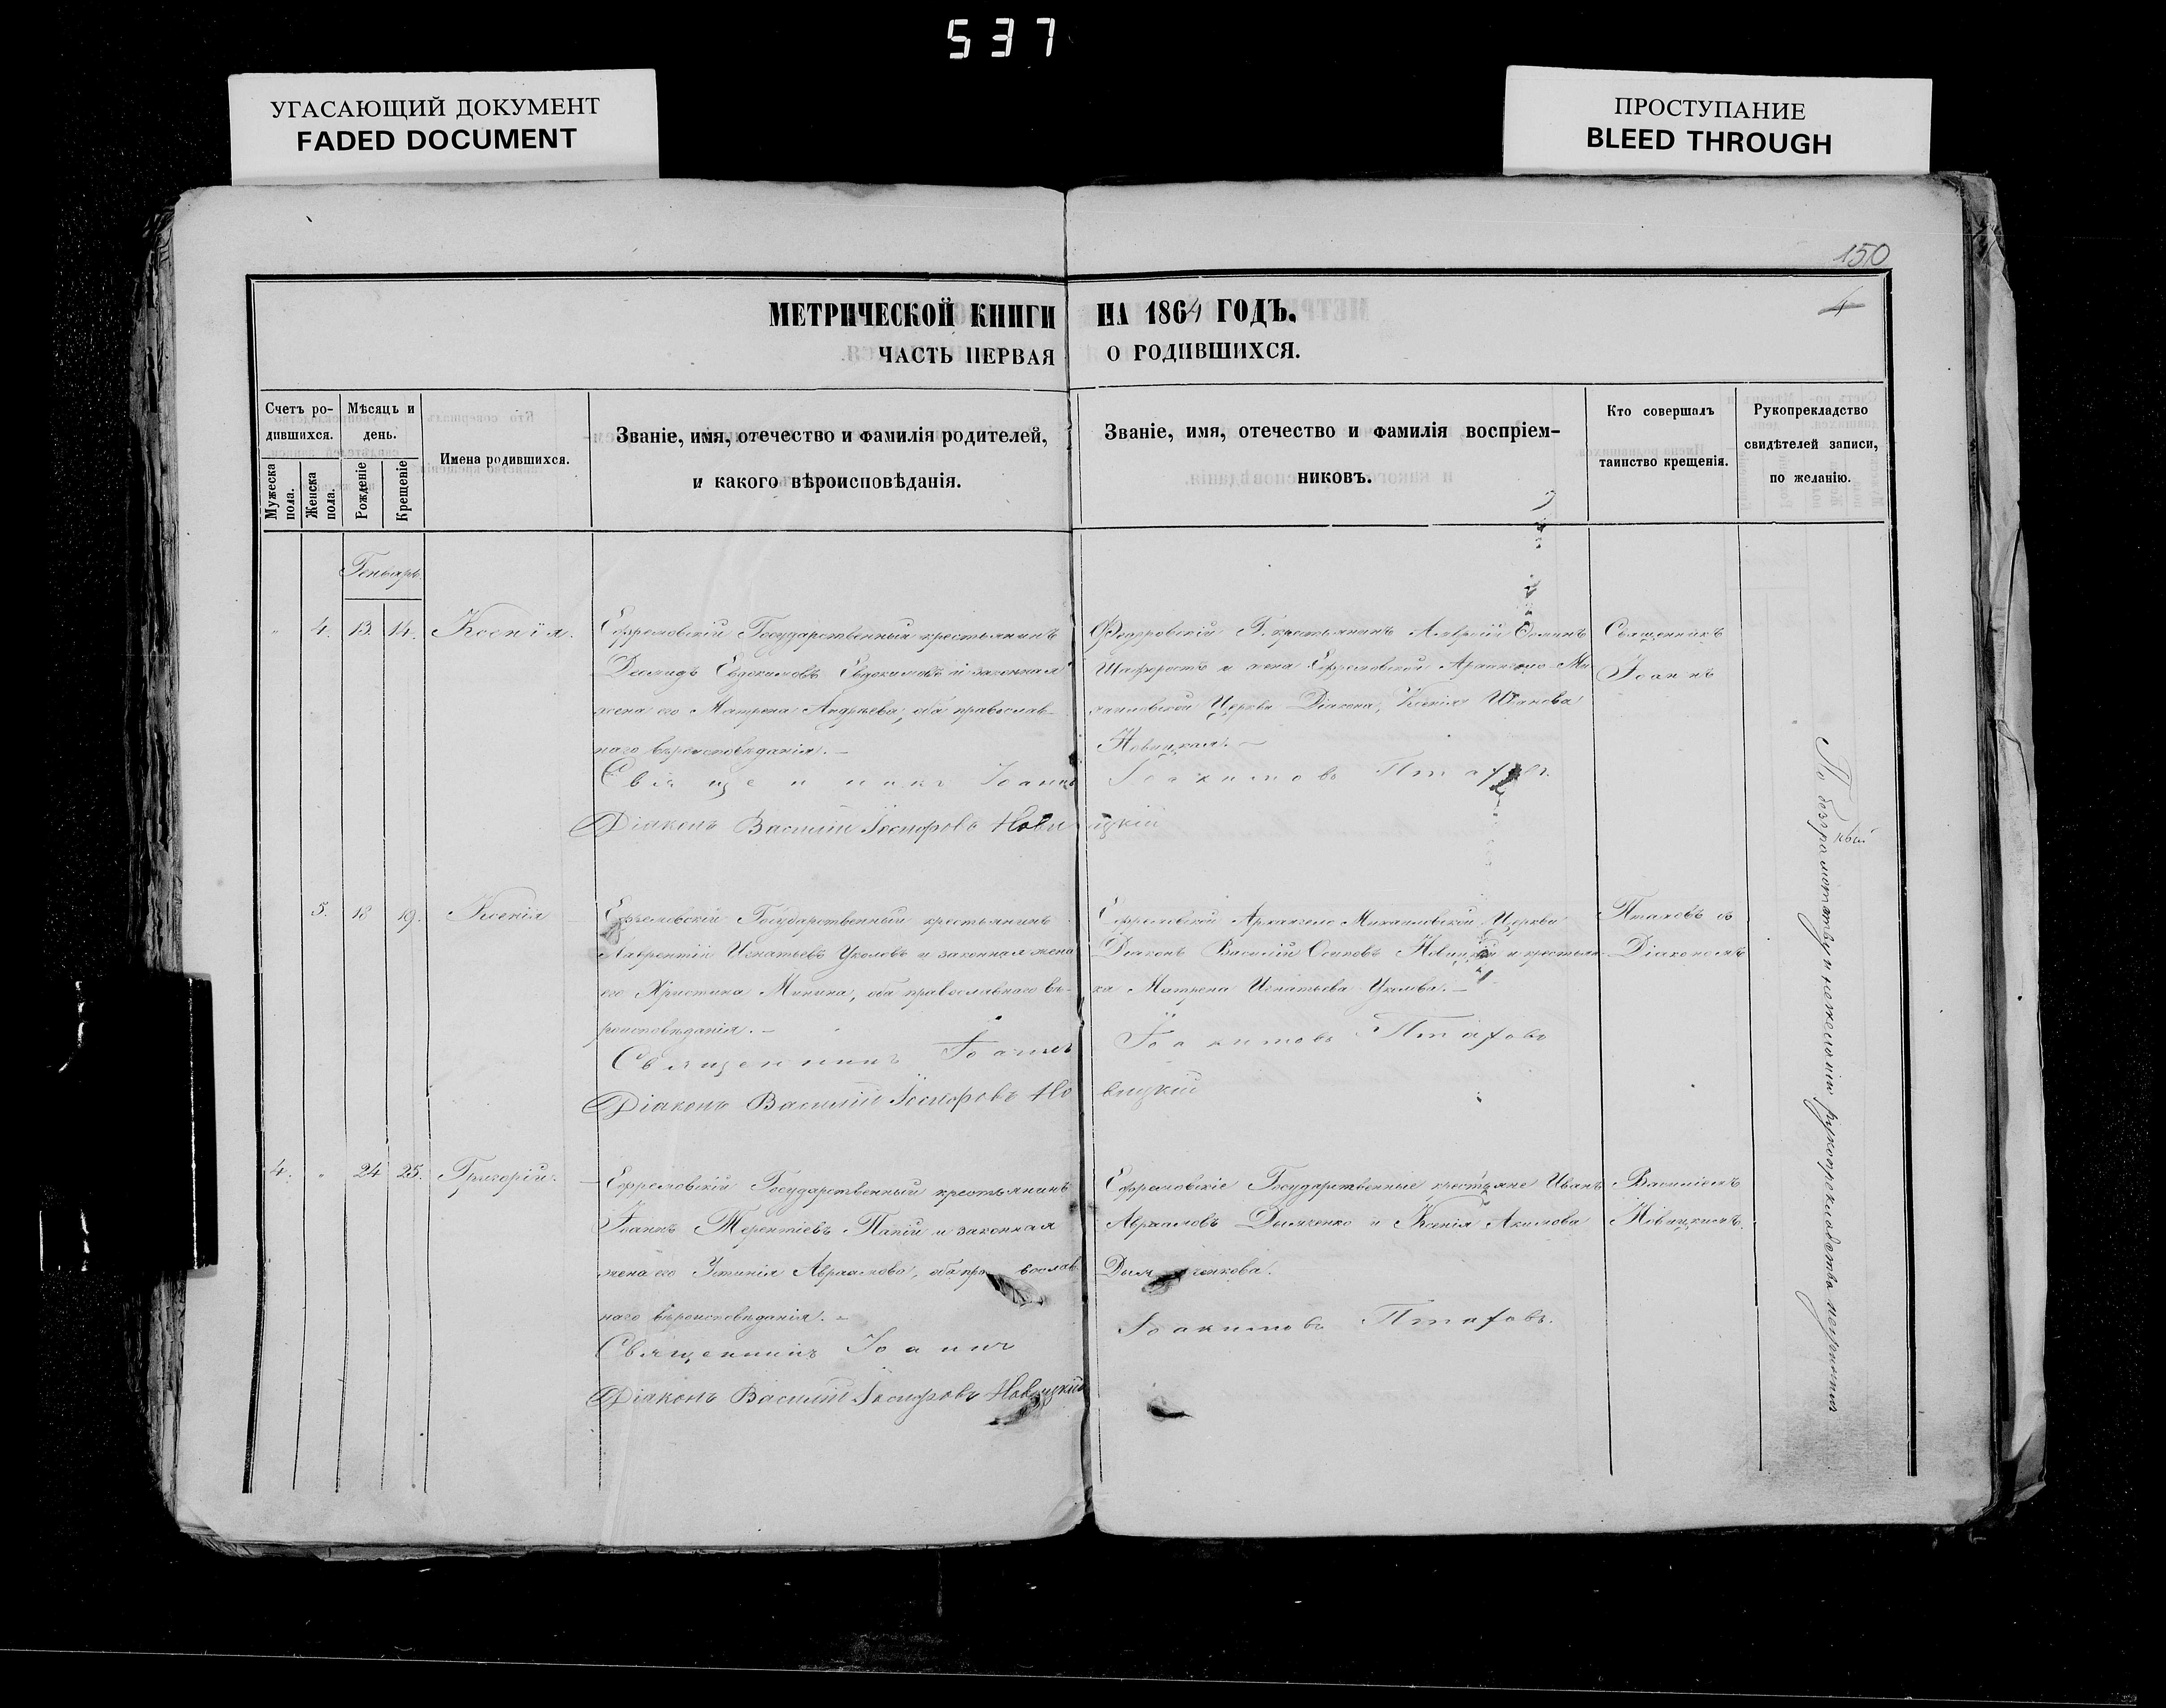 537
УГАСАЮЩИЙ ДОКУМЕНТ
FADED DOCUMENT
ПРОСТУПАНИЕ
BLEED THROUGH
150
4
МЕТРИЧЕСКОЙ КНИГИ НА 1864 ГОДЪ.
ЧАСТЬ ПЕРВАЯ О РОДИВШИХСЯ.
Счетъ ро-
дившихся.
Мужеска
пола.
Женска
пола.
Мѣсяцъ и
день.
Рожденіе
Крещеніе
Имена родившихся.
Званіе, имя, отечество и фамилія родителей,
и какого вѣроисповѣданія.
Званіе, имя, отечество и фамилія воспріем-
никовъ.
Кто совершалъ
таинство крещенія.
Рукопрекладство
свидѣтелей записи,
по желанію.
Генварь.
4. 13. 14. Ксенія.
Ефремовскій Государственный крестьянинъ
Евдокимовъ и законная
жена его Матрена Андреева, оба православ-
наго вѣроисповѣданія. —
Ѳедоровскій Г. крестьянинъ
и жена Ефремовской Архангело-Ми-
хаиловской Церкви Діакона, Ксенія Иванова
Новицкая. —
Священникъ
Іоаннъ
Священникъ Іоаннъ Іоакимовъ Птаховъ.
Діаконъ Василій Іосифовъ Новицкій
5. 18 19. Ксенія
Ефремовскій Государственный крестьянинъ
Лаврентій Игнатьевъ Уколовъ и законная жена
его Христина Минина, оба православнаго вѣ-
роисповѣданія. —
Ефремовской Архангело Михаиловской Церкви
Діаконъ Василій Осиповъ Новицкій и крестьян-
ка Матрена Игнатьева Уколова. —
Птаховъ съ
Діакономъ
Священникъ Іоаннъ Іоакимовъ Птаховъ
Діаконъ Василій Іосифовъ Новицкій
4. " 24 25. Григорій.
Ефремовскій Государственный крестьянинъ
Іоаннъ Терентіевъ Папій и законная
жена его Устинія Авраамова, оба православ-
наго вѣроисповѣданія. —
Ефремовскіе Государственные крестьяне Иванъ
Авраамовъ Дымченко и Ксенія Акимова
Дымченкова.
Василіемъ
Новицкимъ.
Священникъ Іоаннъ Іоакимовъ Птаховъ.
Діаконъ Василій Іосифовъ Новицкій
По безграмотству и нежеланію рукоприкладства